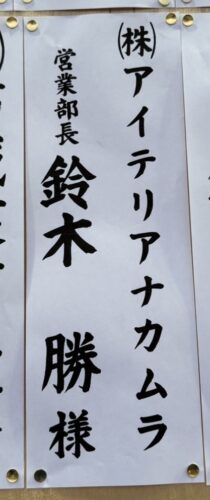 ㈱アイテリアナカムラ
営業部長
鈴木 勝 様